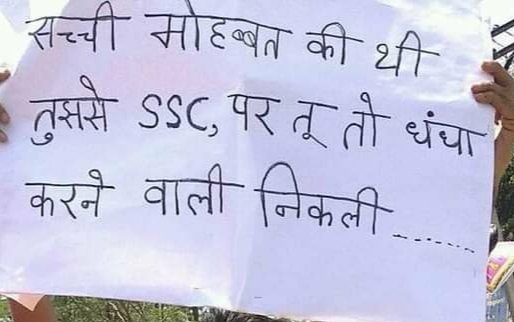 सच्ची मोहब्बत की थी
तुझसे SSC, पर तू तो धंधा
करने वाली निकली.......